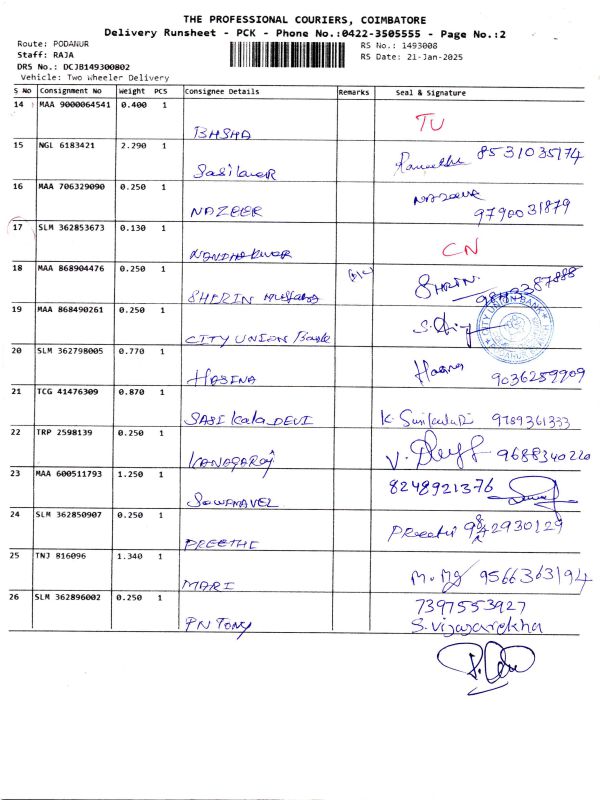 THE PROFESSIONAL COURIERS, COIMBATORE
Delivery Runsheet - PCK - Phone No.:0422-3505555 - Page No.:2
Route: PODANUR
Staff: RAJA
DRS No.: DCJB149300802
Vehicle: Two Wheeler Delivery
RS No.: 1493008
RS Date: 21-Jan-2025
S No Consignment No Weight PCS Consignee Details Remarks Seal & Signature
14 MAA 9000064541 0.400 1
BHSHA TU
15 NGL 6183421 2.290 1
8531035174
16 MAA 706329090 0.250 1
NAZEER 9790031879
17 SLM 362853673 0.130 1
NANDHAKUMAR CN
18 MAA 868904476 0.250 1
SHERIN SHRIN
19 MAA 868490261 0.250 1
CITY UNION Bank CITY UNION BANK
20 SLM 362798005 0.770 1
HASINA 9036259909
21 TCG 41476309 0.870 1
SASI Kala DEVI 9789361333
22 TRP 2598139 0.250 1
KANAGARAJ 9688340220
23 MAA 600511793 1.250 1
8248921376
24 SLM 362850907 0.250 1
PREETHI Preethi
25 TNJ 816096 1.340 1
MARI 9566363194
26 SLM 362896002 0.250 1
PN Tony 7397553927
S.vijayarekha